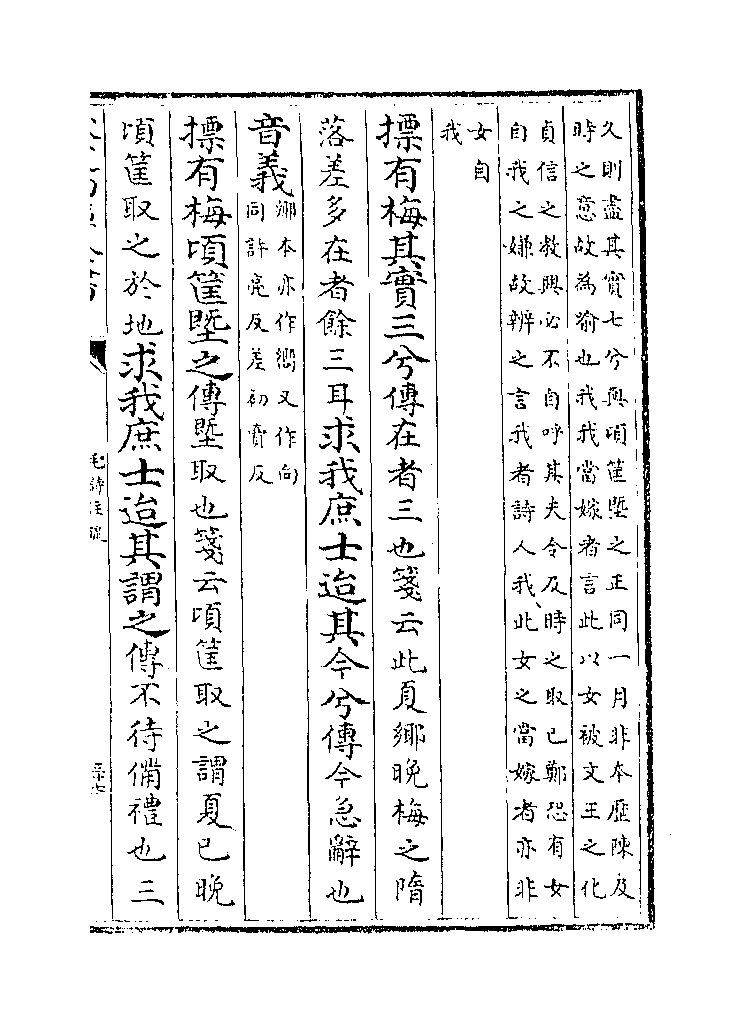 久則盡其實七兮與頃筐塈之正同一月非本歴陳及
時之意故為喻也我我當嫁者言此以女被文王之化
貞信之教興必不自呼其夫令及時之取已鄭恐有女
自我之嫌故辨之言我者詩人我此女之當嫁者亦非
女自
我
摽有梅其實三兮傳在者三也箋云此夏鄉晚梅之隋
落差多在者餘三耳求我庶士迨其今兮傳今急辭也
音義鄉本亦作嚮又作向
同許亮反差初賣反
摽有梅頃筐塈之傳塈取也箋云頃筐取之謂夏已晚
頃筐取之於地求我庶士迨其謂之傳不待備禮也三
毛詩注疏